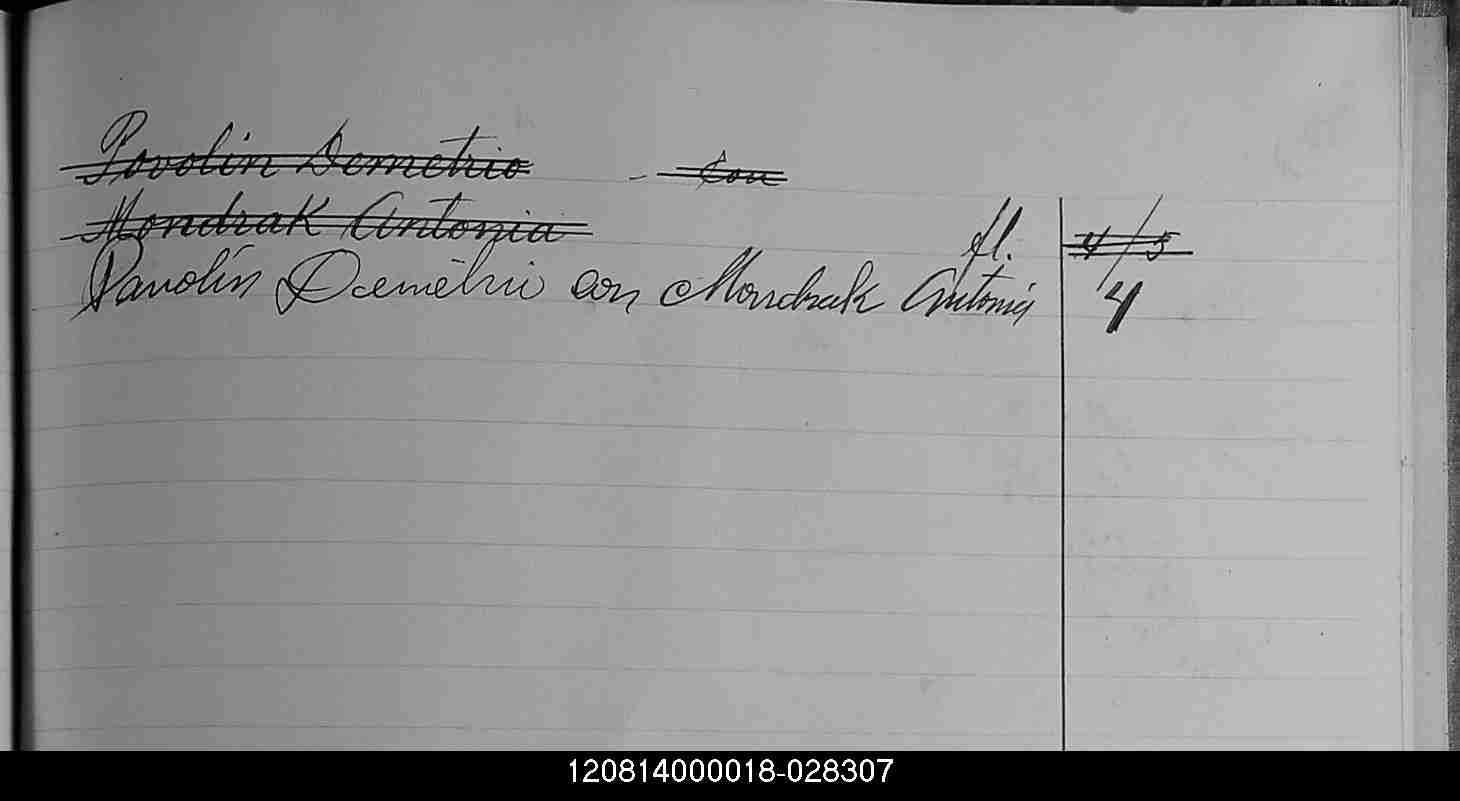 Povolin Demetrio - Con
Mondrak Antonia fl. 4/5
Pavolin Demetrio con Mondrak Antonia 4
120814000018-028307